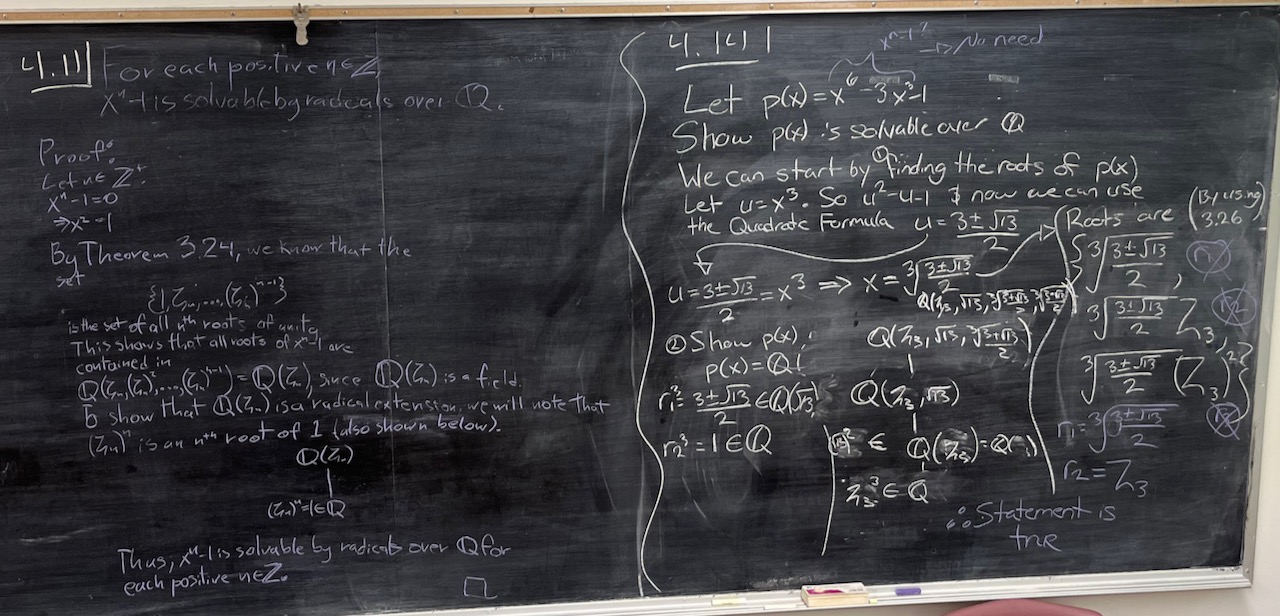 4.11 For each positive n ∈ ℤ,
xⁿ-1 is solvable by radicals over ℚ.
Proof:
Let n ∈ ℤ⁺.
xⁿ-1=0
⇒x²=1
By Theorem 3.24, we know that the
set
{1, ζₙ, ..., (ζₙ)ⁿ⁻¹}
is the set of all nᵗʰ roots of unity
This shows that all roots of xⁿ-1 are
contained in
ℚ(ζₙ, (ζₙ)², ..., (ζₙ)ⁿ⁻¹) = ℚ(ζₙ), since ℚ(ζₙ) is a field.
To show that ℚ(ζₙ) is a radical extension, we will note that
(ζₙ)ⁿ is an nᵗʰ root of 1 (also shown below).
ℚ(ζₙ)
|
(ζₙ)ⁿ=1∈ℚ
Thus, xⁿ-1 is solvable by radicals over ℚ for
each positive n∈ℤ.
□
4.14
xⁿ-1? → No need
Let p(x) = x⁶-3x³-1
Show p(x) is solvable over ℚ
We can start by ① finding the roots of p(x)
Let u=x³. So u²-u-1 & now we can use
the Quadratic Formula u = (3±√13)/2
u = (3±√13)/2 = x³ ⇒ x = ∛((3±√13)/2)
② Show p(x),
p(x) = ℚ!
r₁³ = (3±√13)/2 ∈ ℚ(√13)
r₂³ = 1 ∈ ℚ
ℚ(ζ₃, √13, ∛((3+√13)/2), ∛((3-√13)/2))
ℚ(ζ₃, √13, ∛((3+√13)/2))
|
ℚ(ζ₃, √13)
|
(√13)² ∈ ℚ(ζ₃) =
ζ₃³ ∈ ℚ
Roots are (By using 3.26)
{∛((3±√13)/2),
∛((3±√13)/2) ζ₃,
∛((3±√13)/2) (ζ₃)²}
r₁ = ∛((3±√13)/2)
r₂ = ζ₃
∴ Statement is
true